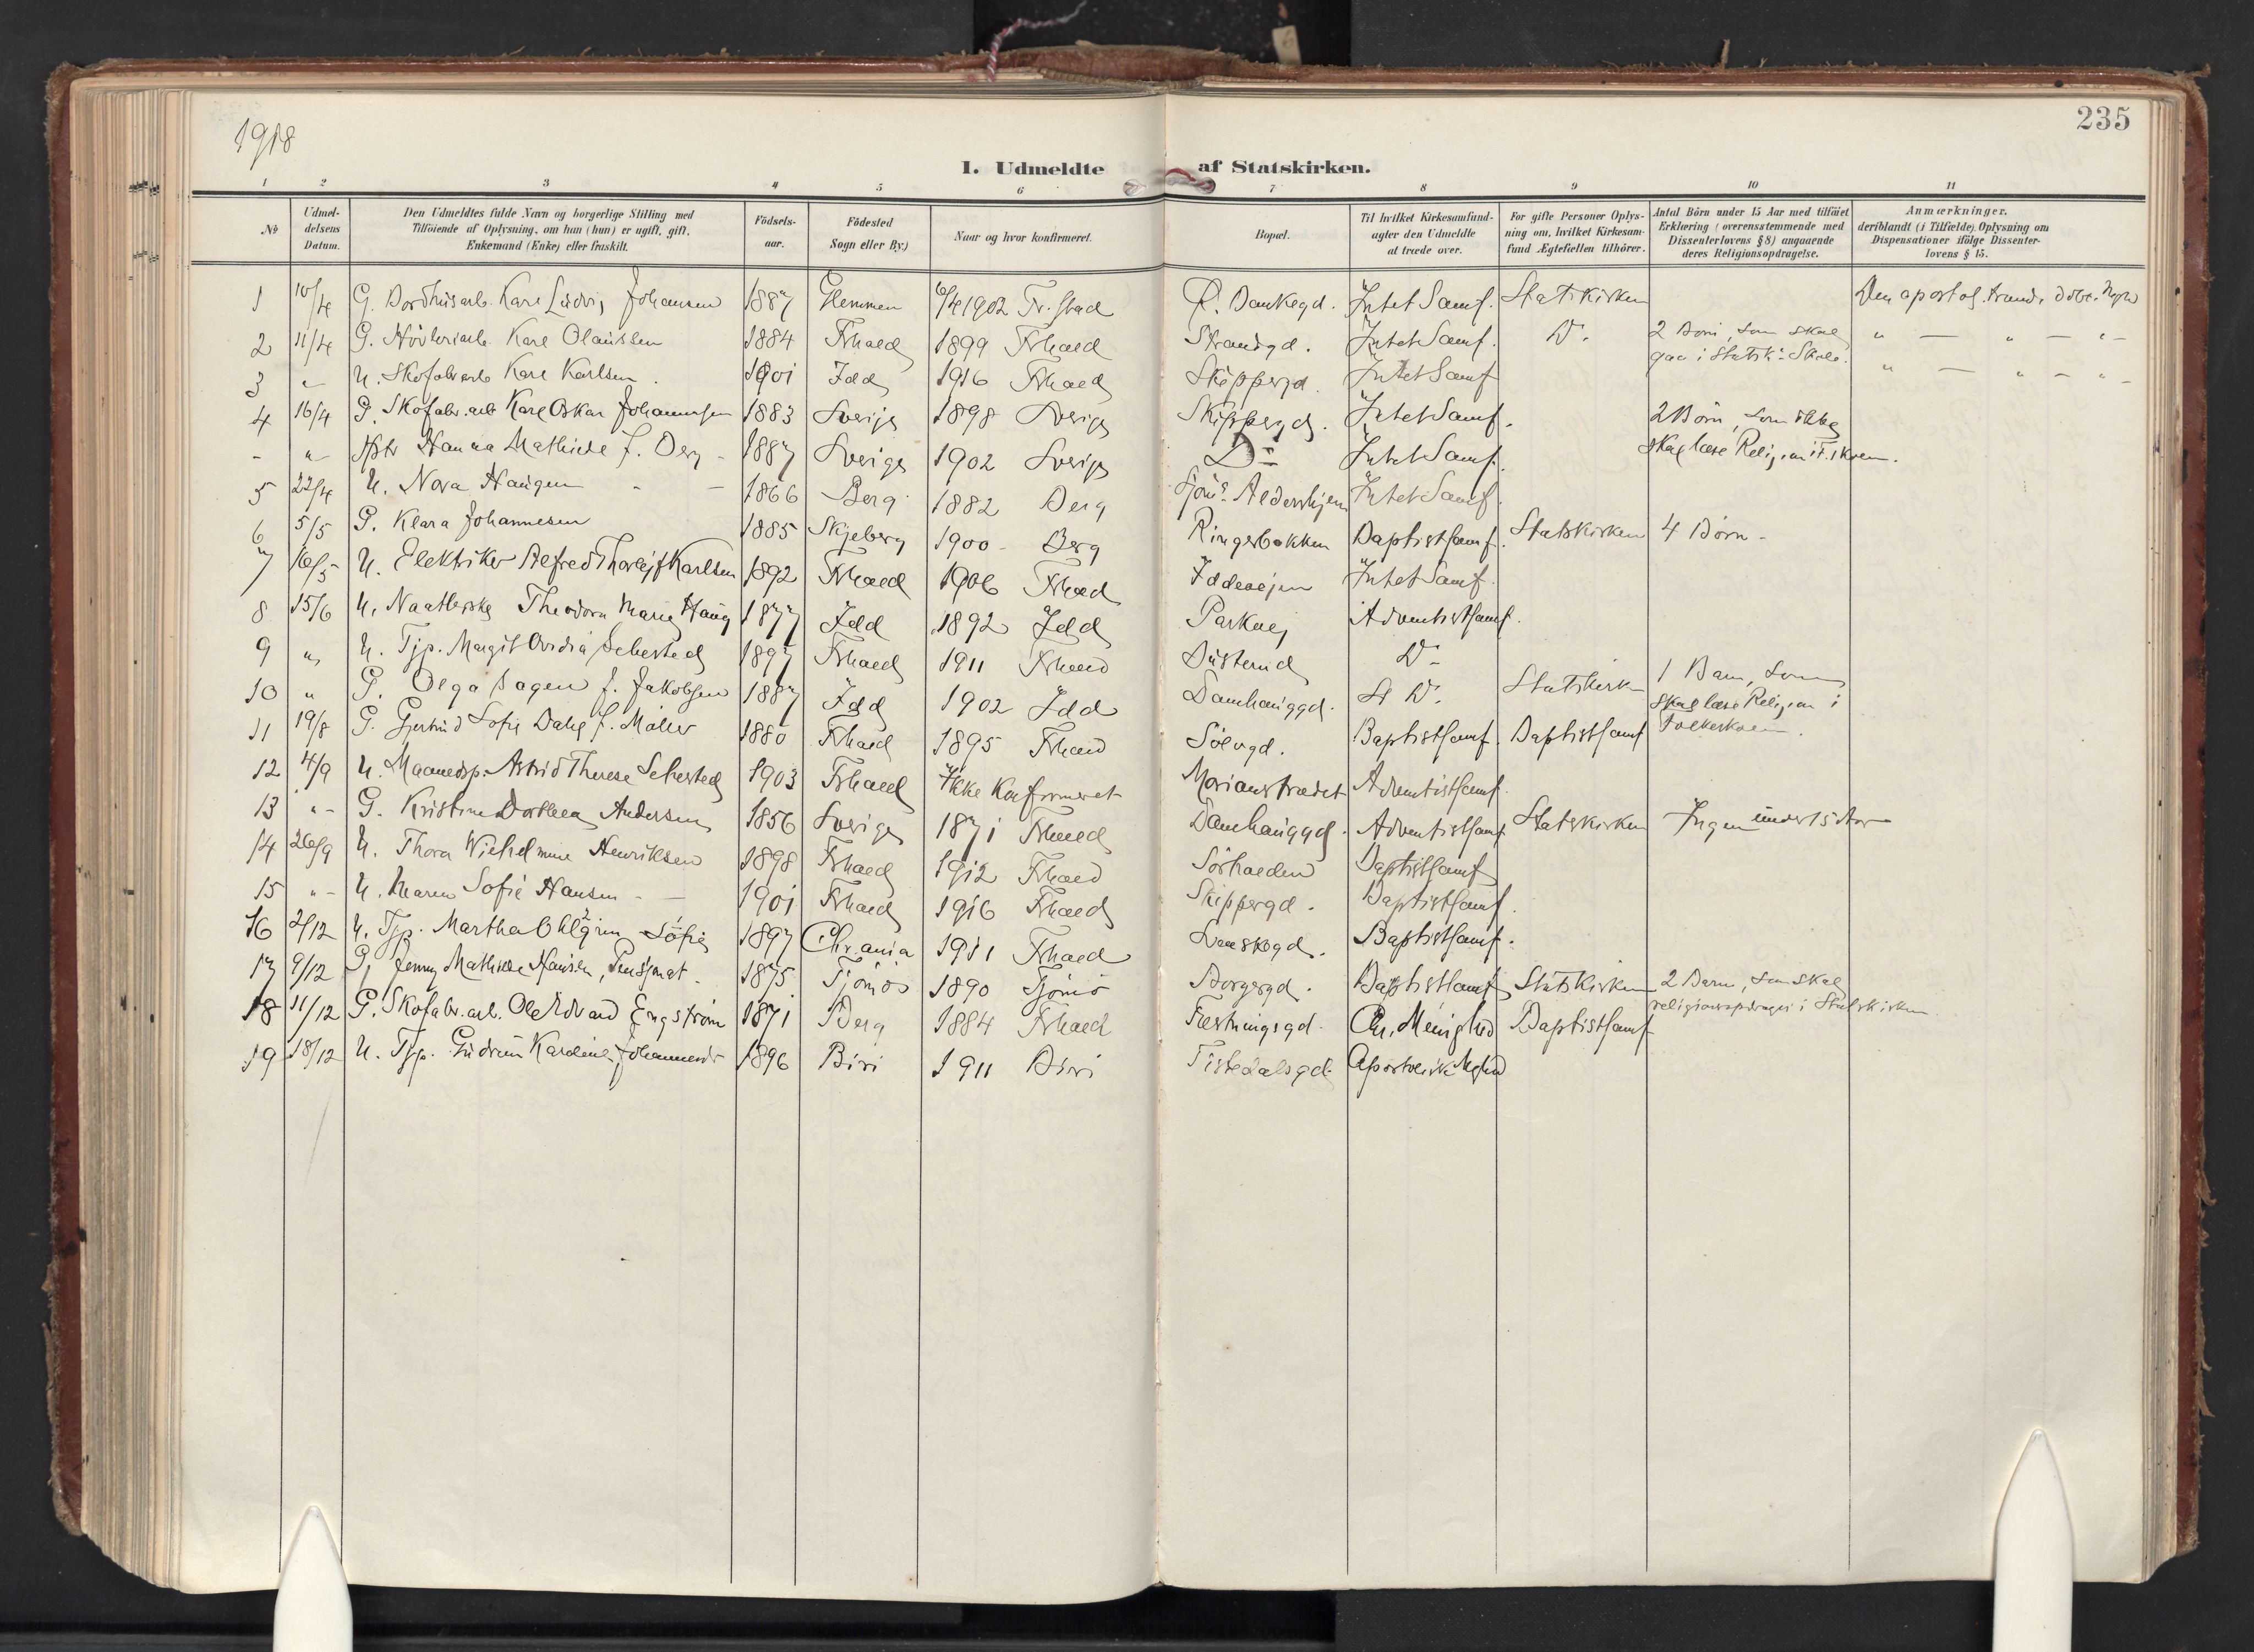 1918
235
I. Udmeldte af Statskirken.
1 2 3 4 5 6 7 8 9 10 11
No
Udmeldelsens Datum.
Den Udmeldtes fulde Navn og borgerlige Stilling med Tilföiende af Oplysning, om han (hun) er ugift, gift, Enkemand (Enke) eller fraskilt.
Födselsaar.
Födested Sogn eller By.)
Naar og hvor konfirmeret.
Bopæl.
Til hvilket Kirkesamfund agter den Udmeldte at træde over.
For gifte Personer Oplysning om, hvilket Kirkesamfund Ægtefællen tilhörer.
Antal Börn under 15 Aar med tilföiet Erklæring (overensstemmende med Dissenterlovens § 8) angaaende deres Religionsopdragelse.
Anmærkninger. deriblandt (i Tilfælde) Oplysning om Dispensationer ifölge Dissenterlovens § 15.
1 10/4 G. Karl Ludvig Johansen 1887 Glemmen 6/4 1902 Fr.stad Intet Samf. Statskirken Den apostol.
2 11/4 G. Karl Olaussen 1884 Frhald 1899 Frhald Strandgd. Intet Samf. Do. 2 Börn, som skal
gaa i Statsk. Skole. " — " — " –
3 " – U. Skofabr.arb Karl Karlsen. 1901 Idd 1916 Frhald Skippergd. Intet Samf " — " – " –
4 16/4 G. Skofabr.arb Karl Oskar Johannesen 1883 Sverige 1898 Sverige Skippergd. Intet Samf. 2 Börn, som ikke
- " – Hstr Hanna Mathilde f. Berg – 1887 Sverige 1902 Sverige Do Intet Samf. skal læse Religion i F.skolen.
5 22/4 U. Nora Haugen - – 1866 Berg 1882 Berg Intet Samf.
6 5/5 G. Klara Johannesen 1885 Skjeberg 1900 – Berg Ringerbakken Baptistsamf. Statskirken 4 Börn –
7 16/5 U. Elektriker Alfred Thorleif Karlsen 1892 Frhald 1906 Frhald Iddeveien Intet Samf.
8 15/6 U. Theodora Marie Haug 1877 Idd 1892 Idd Parkvej Adventistsamf.
9 " U. Tjp. Margit Ovidia Sehested 1897 Frhald 1911 Frhald Do
10 " G. Olga Hagen f. Jakobsen 1887 Idd 1902 Idd Damhauggd. Do. Statskirk 1 Barn, som
skal læse Religion i
Folkeskolen.
11 19/8 G. Gjertrud Sofie Dahl f. Möller 1880 Frhald 1895 Frhald Sölvgd. Baptistsamf. Baptistsamf
12 4/9 U. Maanedsp. Astrid Therese Sehested 1903 Frhald Ikke Konfirmeret Marianstrædet Adventistsamf.
13 " – G. Kristine Dorthea Andersen 1856 Sverige 1871 Frhald Damhauggd. Adventistsamf. Statskirken Ingen under 15 Aar
14 26/9 U. Thora Wilhelmine Henriksen 1898 Frhald 1912 Frhald Sörhalden Baptistsamf
15 " – U. Maren Sofie Hansen - – 1901 Frhald 1916 Frhald Skippergd. Baptistsamf.
16 2/12 U. Tjp. Martha Ohlgren Sofie 1897 Chr.ania 1911 Frhald Svenskegd. Baptistsamf.
17 9/12 G. Jenny Mathilde Hansen, Pensjonat. 1875 Tjömö 1890 Tjömö Borgergd. Baptistsamf. Statskirken 2 Barn, som skal
religionsopdrages i Statskirken
18 11/12 G. Skofabr.arb. Ole Edvard Engström 1871 Berg 1884 Frhald Fæstningsgd. Chr. Menighed Baptistsamf
19 18/12 U. Tjp. Gudrun Karoline Johannesdr 1896 Biri 1911 Biri Tistedalsgd. Apostolisk Mghed